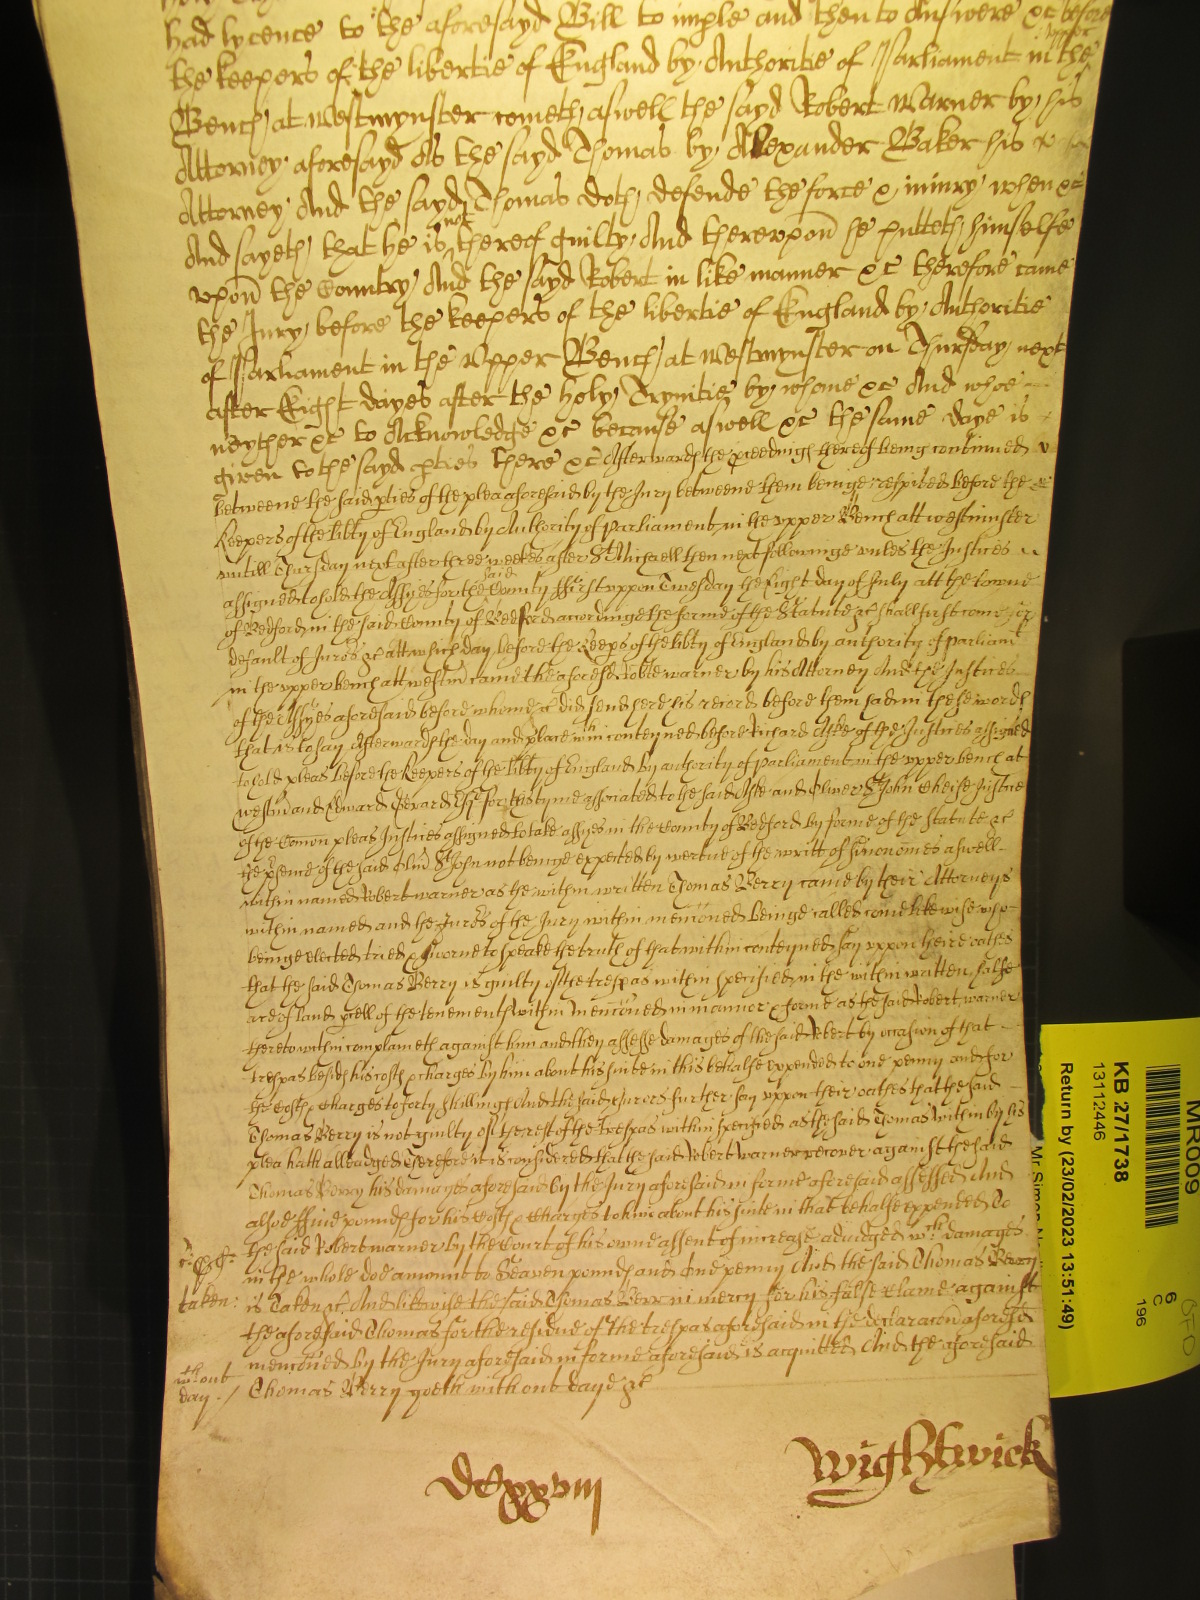 had lycence to the aforesayd Bill to imple and then to Answere &c before
the keepers of the libertie of England by Authoritie of Parliament in the upper
Bench at Westmynster cometh aswell the sayd Robert Warner by his
Attorney aforesayd As the sayd Thomas by Alexander Baker his
Attorney And the sayd Thomas doth defende the force & iniury when &c
And sayeth that he is not thereof guilty And thereupon he putteth himselfe
upon the Country And the sayd Robert in like manner &c therefore came
the Jury before the keepers of the libertie of England by Authoritie
of Parliament in the Upper Bench at Westmynster on Thursday next
after Eight dayes after the holy Trynitie by whome &c And whoe
neyther &c to Acknowledge &c because aswell &c the same daye is
given to the sayd pties there &c Afterwards the pceedings thereof being continued
betweene the said pties of the plea aforesaid by the Jury betweene them beinge respited before the
Keepers of the libty of England by Authority of Parliament in the upper Bench att westminster
untill Thursday next after three weekes after St Michaell then next followinge unles the Justices
assigned to hold the Assizes for the said County first uppon Tuesday the Eight day of July att the towne
of Bedford in the said County of Bedford accordinge the forme of the Statute &c shall first come for
default of Juros &c att which day before the Keeps of the libty of England by authority of parliamt
in the upper bench att westm came the aforesd Robte warner by his Attorney And the Justices
of the Assizes aforesaid before whome &c did send here his record before them had in these words
that is to say Afterwards the day and place wthin conteyned before Richard Aske of the Justices assigned
to hold pleas before the Keepers of the libty of England by authority of parliament in the upper bench at
westm and Edward Esqr for this tyme associated to the said Aske and Oliver St John Cheife Justice
of the Comon pleas Justices assigned to take assizes in the County of Bedford by forme of the Statute &c
the psence of the said Olivr St John not beinge expected by vertue of the writt of si non omes aswell
within named Robert warner as the within written Thomas Berry came by their Attorneys
within named and the Jurors of the Jury within mencioned beinge called come likewise who
beinge elected tried & sworne to speake the truth of that within conteyned say uppon their oathes
that the said Thomas Berry is guilty of the trespas within specified in the within written halfe
acre of land pcell of the tenements within mencioned in manner & forme as the said Robert warner
thereto within complaineth against him and they assesse damages of the said Robert by occasion of that
trespas besids his costs & charges by him about his suite in this behalfe expended to one penny and for
the Costs & Charges to forty shillings And the said Jurors further say uppon their oathes that the said
Thomas Berry is not guilty of the rest of the trespas within specified as the said Thomas within by his
plea hath alleadged Therefore it is considered that the said Robert warner recover against the said
Thomas Berry his damages aforesaid by the Jury aforesaid in forme aforesaid assessed And
alsoe ffive pounds for his Costs & Charges to him about his suite in that behalfe expended to
the said Robert warner by the Court of his owne assent of increase adiudged wch damages
in the whole doe amount to Seaven pounds and one penny And the said Thomas Berry
taken: is Taken &c. And likewise the said Thomas Berr in mercy for his false Clame against
the aforesaid Thomas for the residue of the trespas aforesaid in the declaracon aforesd
mencioned by the Jury aforesaid in forme aforesaid is acquitted And the aforesaid
without day / Thomas Berry goeth without daye &c
Dcxxviij
Wightwick
MR0009
KB 27/1738
13112446
Return by (23/02/2023 13:51:49)
6
C
196